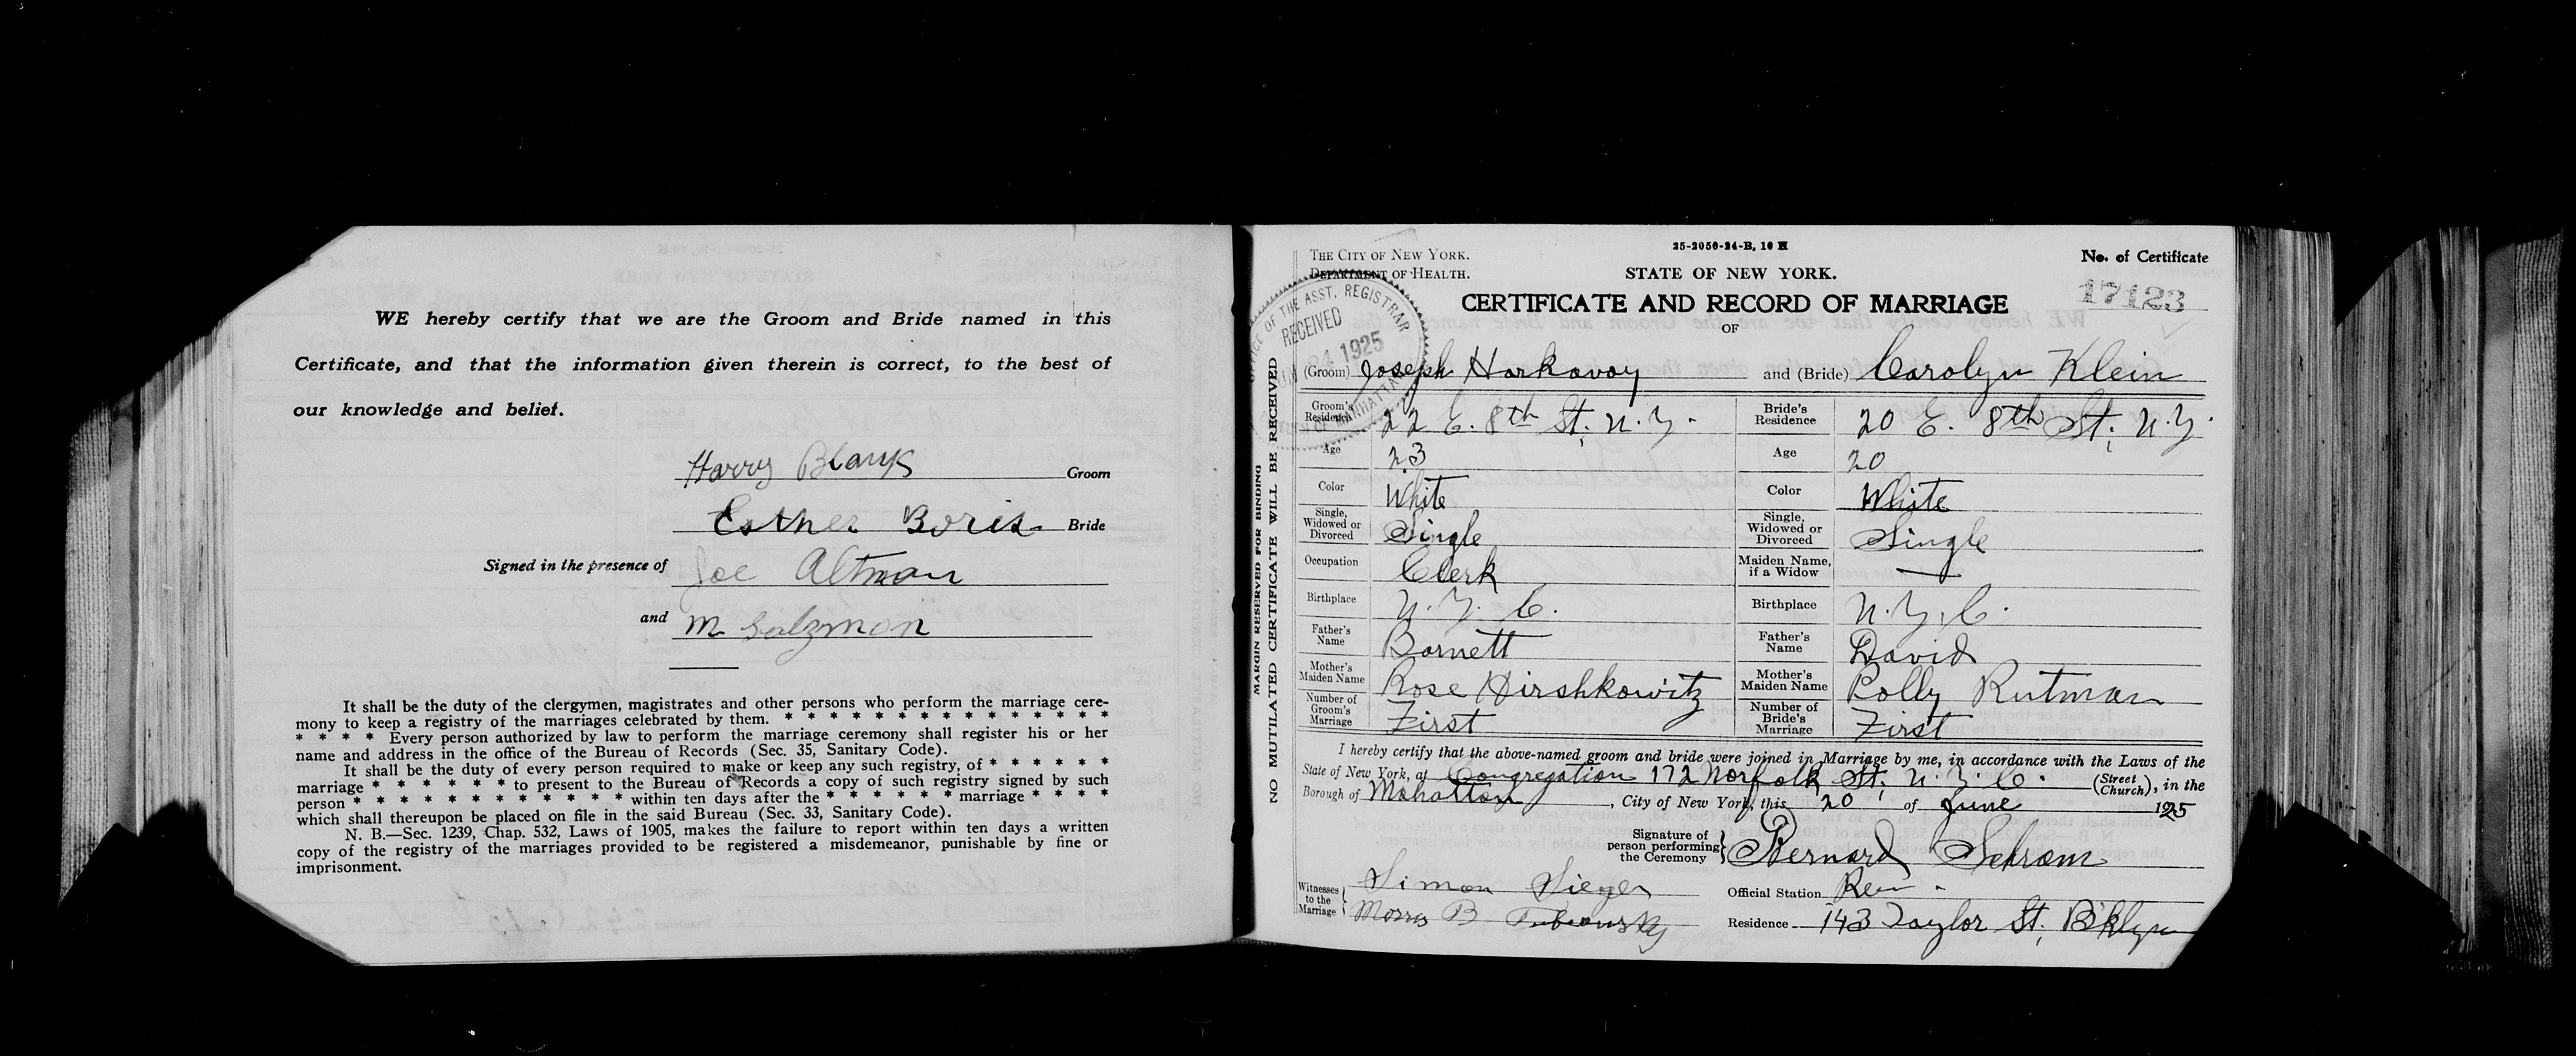 WE hereby certify that we are the Groom and Bride named in this
Certificate, and that the information given therein is correct, to the best of
our knowledge and belief.
Harry Blank Groom
Esther Boris Bride
Signed in the presence of Joe Altman
and M Salzman
It shall be the duty of the clergymen, magistrates and other persons who perform the marriage cere-
mony to keep a registry of the marriages celebrated by them. * * * * * * * * * * * * *
* * * * Every person authorized by law to perform the marriage ceremony shall register his or her
name and address in the office of the Bureau of Records (Sec. 35, Sanitary Code).
It shall be the duty of every person required to make or keep any such registry, of * * * * * *
marriage * * * * * * to present to the Bureau of Records a copy of such registry signed by such
person * * * * * * * * * * * * within ten days after the * * * * * * marriage * * * *
which shall thereupon be placed on file in the said Bureau (Sec. 33, Sanitary Code).
N. B.—Sec. 1239, Chap. 532, Laws of 1905, makes the failure to report within ten days a written
copy of the registry of the marriages provided to be registered a misdemeanor, punishable by fine or
imprisonment.
MARGIN RESERVED FOR BINDING
NO MUTILATED CERTIFICATE WILL BE RECEIVED
25-2050-24-B, 10 H
THE CITY OF NEW YORK.
DEPARTMENT OF HEALTH.
STATE OF NEW YORK.
No. of Certificate
17123
CERTIFICATE AND RECORD OF MARRIAGE
OF
OFFICE OF THE ASST. REGISTRAR
RECEIVED
24 1925
MANHATTAN
(Groom) Joseph Harkavoy and (Bride) Carolyn Klein
Groom's Residence 22 E. 8th St; N.Y. Bride's Residence 20 E. 8th St; N.Y.
Age 23 Age 20
Color White Color White
Single, Widowed or Divorced Single Single, Widowed or Divorced Single
Occupation Clerk Maiden Name, if a Widow —
Birthplace N.Y.C. Birthplace N.Y.C.
Father's Name Barnett Father's Name David
Mother's Maiden Name Rose Hirshkowitz Mother's Maiden Name Polly Rutman
Number of Groom's Marriage First Number of Bride's Marriage First
I hereby certify that the above-named groom and bride were joined in Marriage by me, in accordance with the Laws of the
State of New York, at Congregation 172 Norfolk St; N.Y.C. (Street Church), in the
Borough of Mahattan, City of New York, this 20 of June 1925
Signature of person performing the Ceremony Bernard Schram
Witnesses to the Marriage Simon Sieger
Official Station Rev.
Morris B
Residence 143 Taylor St; B'klyn